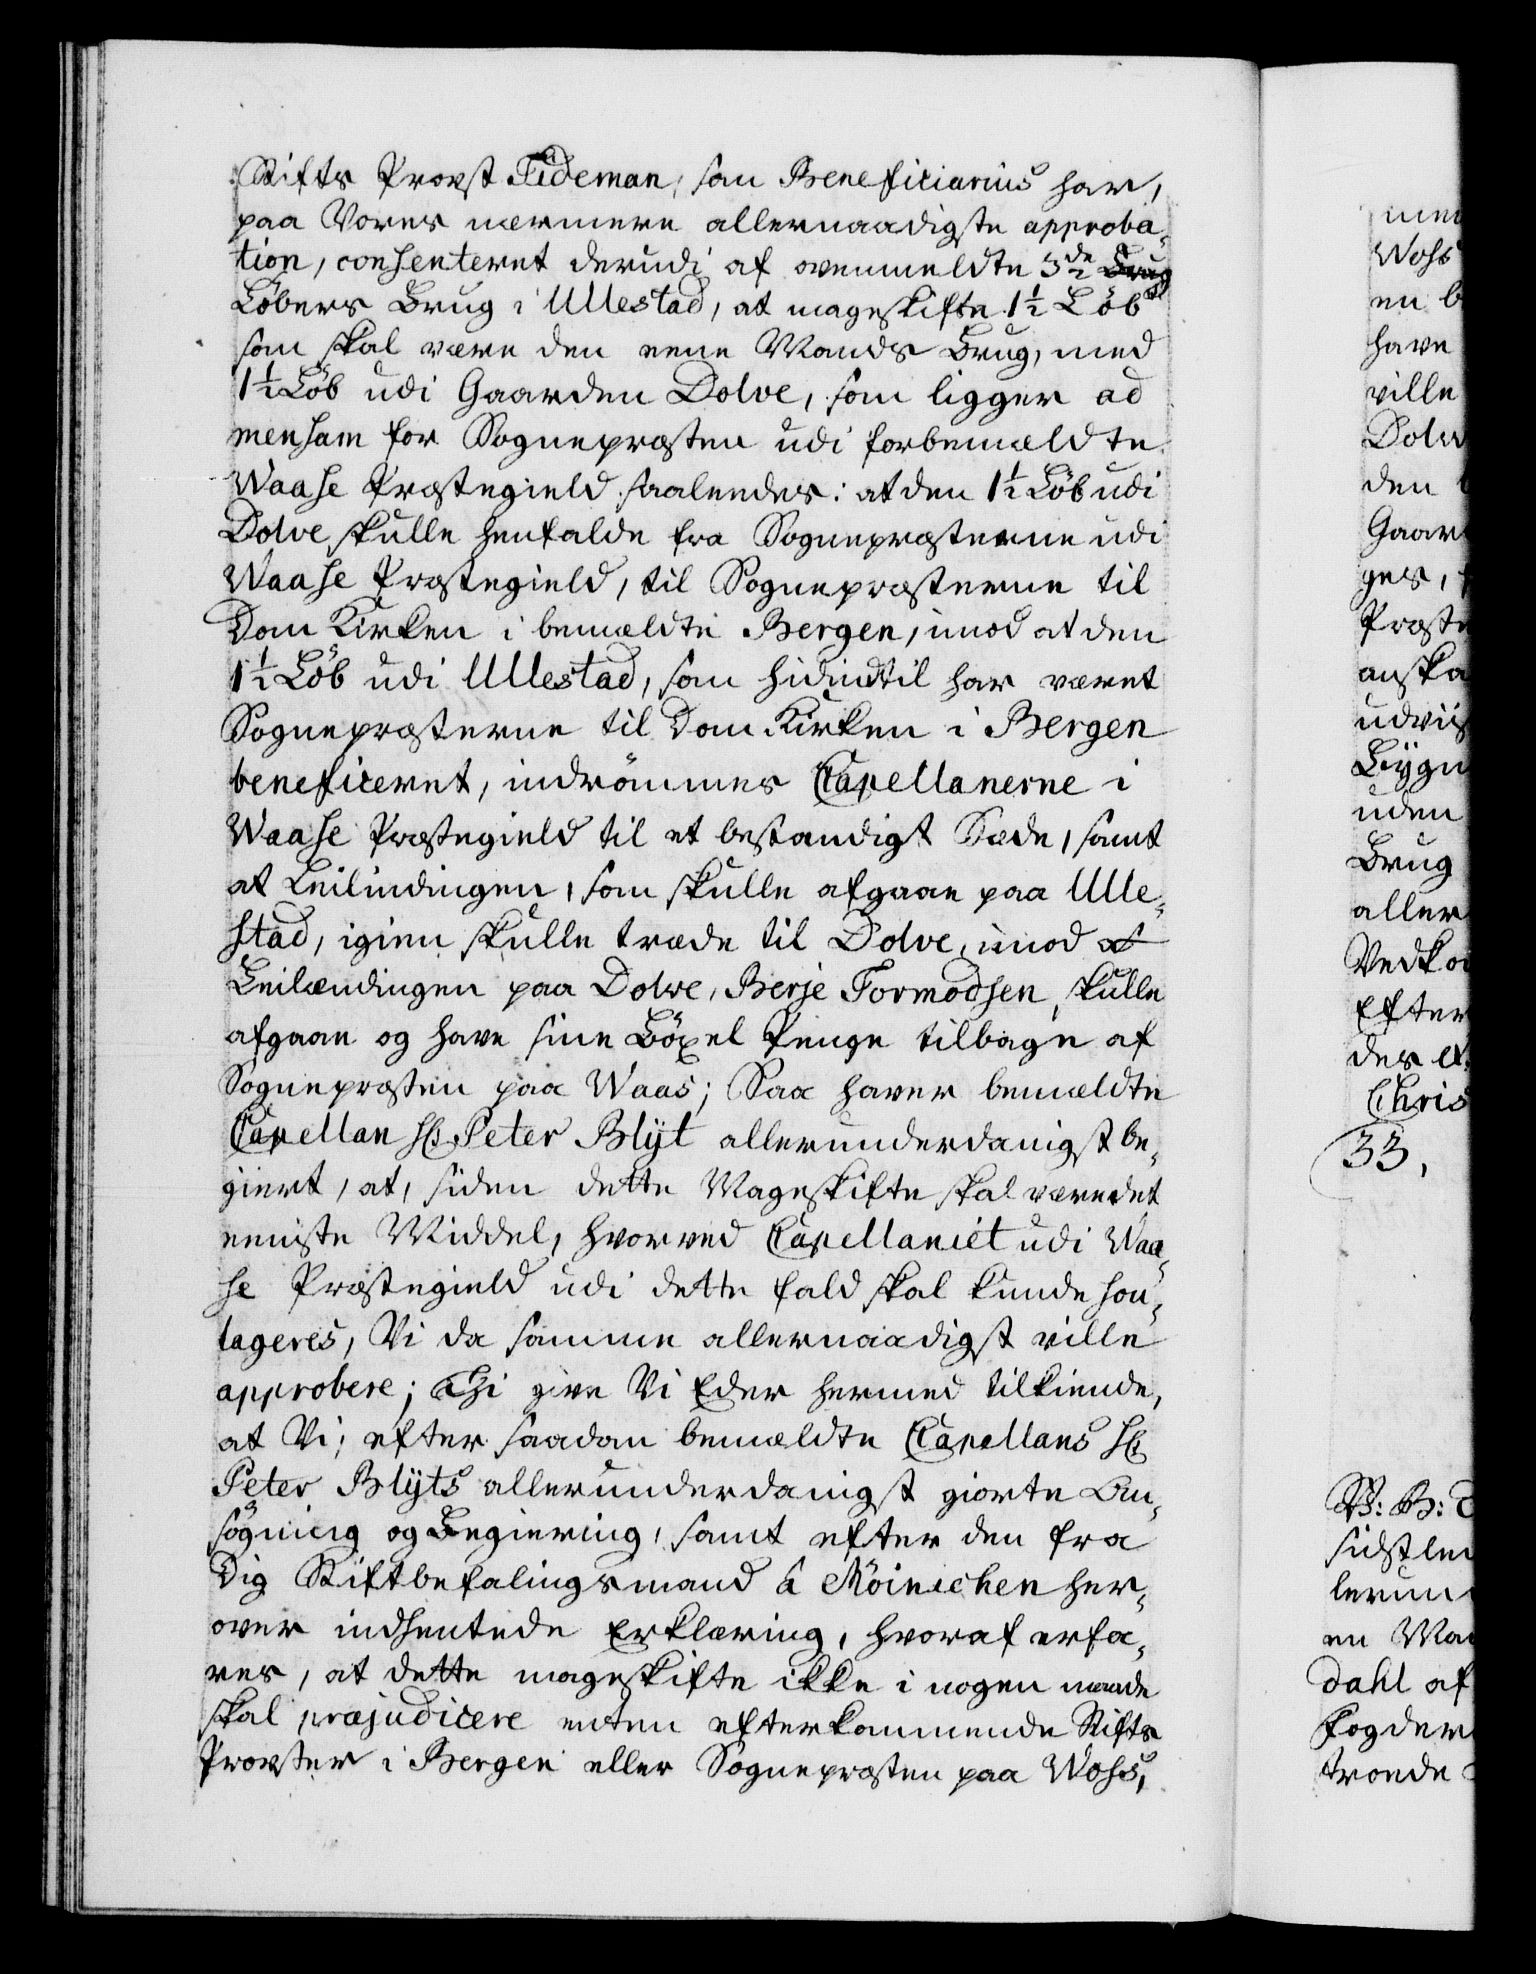 Stifts Provst Tideman, som Beneficiarius har,
paa Vores nærmere allernaadigste approba-
tion, consenteret derudi af ovenmeldte 3de
Löbers Brug i Ullestad, at mageskifte 1½ Löb
som skal være den eene Mands Brug, med
1½ Löb udi Gaarden Dolve, som ligger ad
mensam for Sognepræsten udi forbemældte
Waase Præstegield saaledes: at den 1½ Löb udi
Dolve skulle henfalde fra Sognepræsterne udi
Waase Præstegield, til Sognepræsterne til
Dom Kirken i bemældte Bergen, imod at den
1½ Löb udi Ullestad, som hidindtil har været
Sognepræsterne til Dom Kirken i Bergen
beneficeret, indrömmes Capellanerne i
Waase Præstegield til et bestandigt Sæde, samt
at Leilindingen, som skulle afgaae paa Ulle-
stad, igien skulle træde til Dolve, imod at
Leilændingen paa Dolve, Berje Tormodsen, skulle
afgaae og have sine Böxel Penge tilbage af
Sognepræsten paa Waas; Saa haver bemældte
Capellan Hr Peter Blijt allerunderdanigst be-
giert, at, siden dette Mageskifte skal være det
eeniste Middel, hvorved Capellaniet udi Waa-
se Præstegield udi dette fald skal kunde sou-
lageres, Vi da samme allernaadigst ville
approbere; Thi give Vi Eder hermed tilkiende,
at Vi, efter saadan bemældte Capellans Hr
Peter Blijts allerunderdanigst giorte An-
sögning og Begiering, samt efter den fra
Dig Stiftbefalingsmand à Möinichen her-
over indhentede Erklæring, hvoraf erfa-
res, at dette mageskifte ikke i nogen maade
skal præjudicere enten efterkommende Stifts
Provster i Bergen eller Sognepræsten paa Wohs,
Wohs
have
ville
den
Præste
uden
Brug
aller
Efter
Chris
33,
dahl af